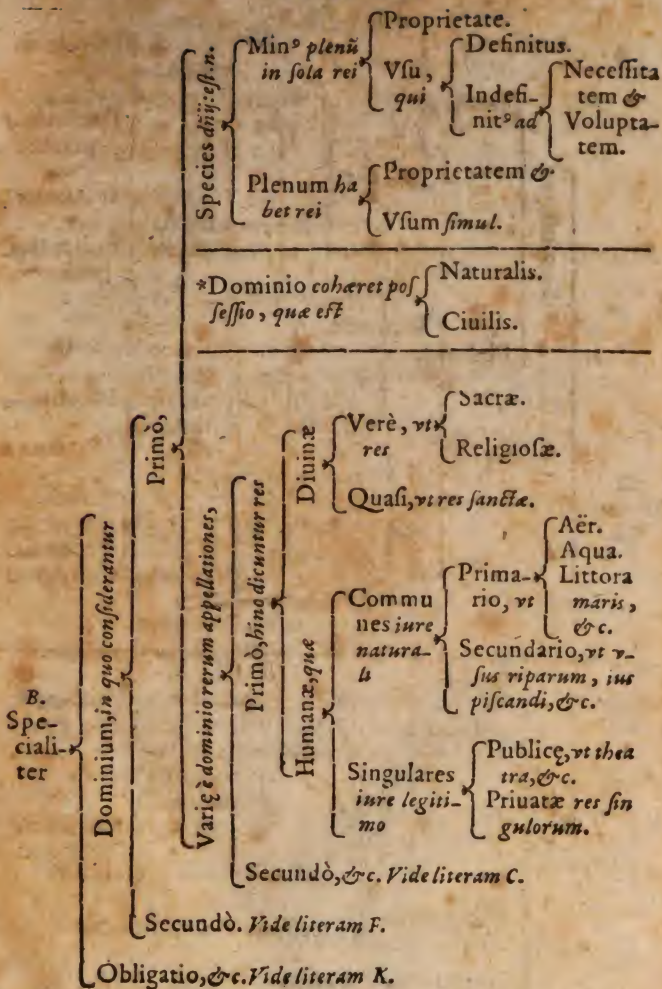 Species dñij: eſt. n.
Minꝰ plenũ
in ſola rei
Proprietate.
Vſu,
qui
Definitus.
Indefi-
nitꝰ ad
Neceſſita
tem &
Volupta-
tem.
Plenum ha
bet rei
Proprietatem &
Vſum ſimul.
*Dominio cohæret poſ
ſeſſio, quæ eſt
Naturalis.
Ciuilis.
B.
Spe-
ciali-
ter
Dominium, in quo conſiderantur
Primò,
Varię è dominio rerum appellationes,
Primò, hinc dicuntur res
Diuinæ
Verè, vt
res
Sacræ.
Religioſæ.
Quaſi, vt res ſanctæ.
Humanæ, quæ
Commu
nes iure
natura-
li
Prima-
rio, vt
Aër.
Aqua.
Littora
maris,
&c.
Secundario, vt v-
ſus riparum, ius
piſcandi, &c.
Singulares
iure legiti-
mo
Publicę, vt thea
tra, &c.
Priuatæ res ſin
gulorum.
Secundò, &c. Vide literam C.
Secundò. Vide literam F.
Obligatio, &c. Vide literam K.